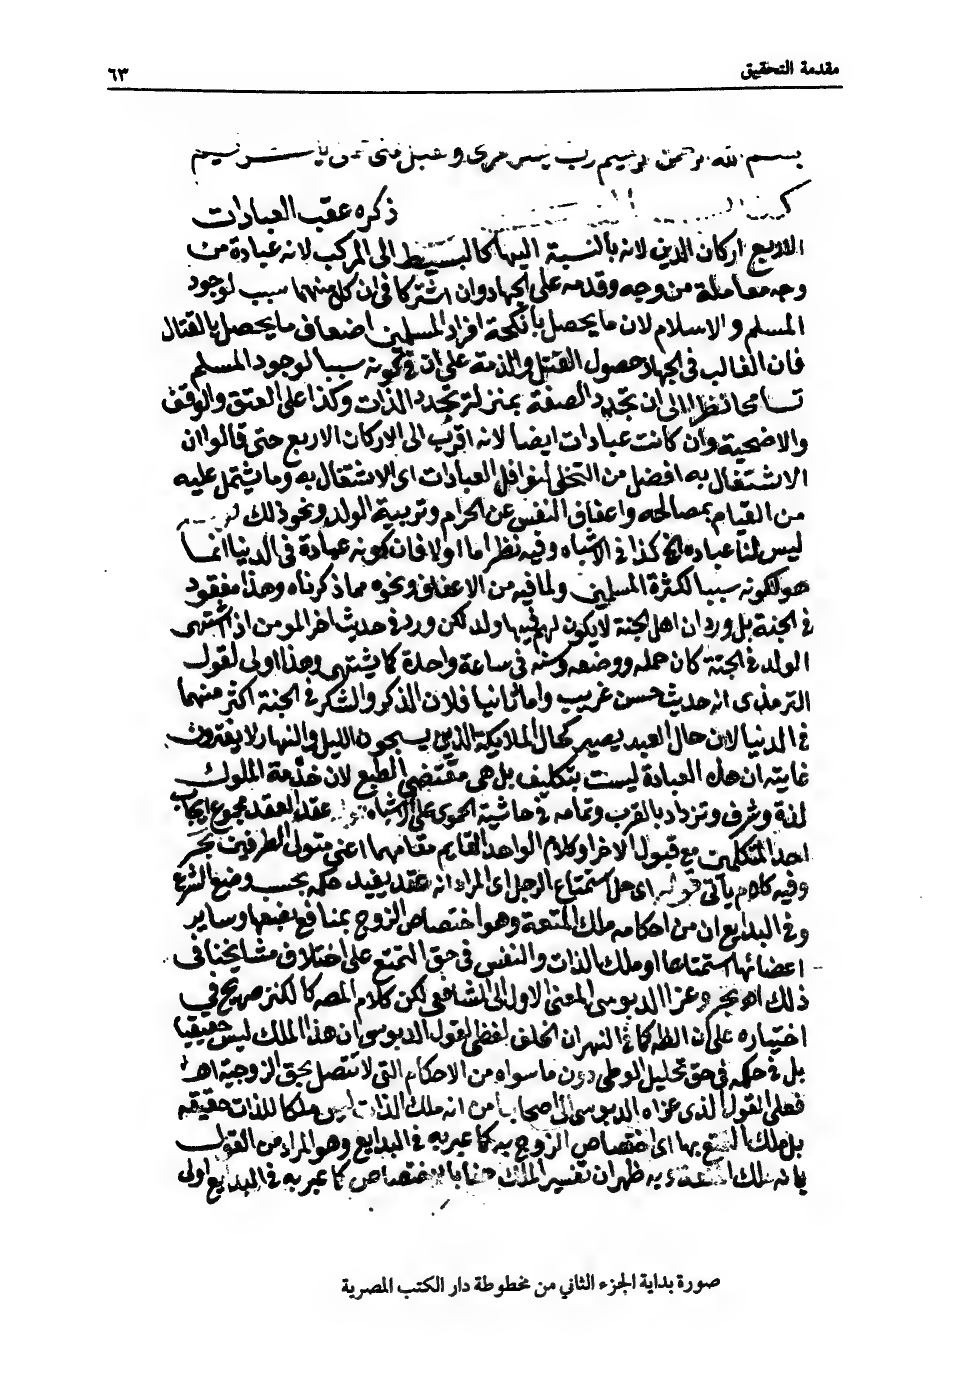 مقدمة التحقيق
٦٣
بسم الله الرحمن الرحيم رب يسر
ذكره عقب العبادات
الاربع اركان الدين لانه بالنسبة اليها كالبسيط الى المركب لانه عبادة من
وجه معاملة من وجه وقدمه على الجهاد وان اشتركا فى ان كل منهما سبب لوجود
المسلم والاسلام لان ما يحصل بانكحة افراد المسلمين اضعاف ما يحصل بالقتال
فان الغالب فى الجهاد حصول القتل والذمة على ان فى كونه سببا لوجود المسلم
تسامحا نظرا الى ان تجدد الصفة بمنزلة تجدد الذات وكذا على العتق والوقف
والاضحية وان كانت عبادات ايضا لانه اقرب الى الاركان الاربع حتى قالوا ان
الاشتغال به افضل من التخلى لنوافل العبادات اى الاشتغال به وما يشتمل عليه
من القيام بمصالحه واعفاف النفس عن الحرام وتربية الولد ونحو ذلك
ليس لنا عبادة الخ كذا فى الاشباه وفيه نظر اما اولا فان كونه عبادة فى الدنيا انما
هو لكونه سببا لكثرة المسلمين ولما فيه من الاعفاف ونحوه مما ذكرناه وهذا مفقود
فى الجنة بل ورد ان اهل الجنة لا يكون لهم فيها ولد لكن ورد فى حديث اخر المومن اذا اشتهى
الولد فى الجنة كان حمله ووضعه وسنه فى ساعة واحدة كما يشتهى وهذا اولى لقول
الترمذى انه حديث حسن غريب واما ثانيا فلان الذكر والشكر فى الجنة اكثر منهما
فى الدنيا لان حال العبد يصير كحال الملايكة الذين يسبحون الليل والنهار لا يفترون
غايته ان هذه العبادة ليست بتكليف بل هى مقتضى الطبع لان خدمة الملوك
لذة وشرف وتزداد بالقرب وتمامه فى حاشية الحموى على الاشباه عقد العقد مجموع ايجاب
احد المتكلمين مع قبول الاخر او كلام الواحد القايم مقامهما اعنى متولى الطرفين بحر
وفيه كلام ياتى قوله اى حل استمتاع الرجل اى المراد انه عقد يفيد حكمه بحسب وضع الشرع
وفى البدايع ان من احكامه ملك المتعة وهو اختصاص الزوج بمنافع بضعها وساير
اعضائها استمتاعا او ملك الذات والنفس فى حق التمتع على اختلاف مشايخنا فى
ذلك اه بحر وعزا الدبوسى المعنى الاول الى الشافعى لكن كلام المصه كالكنز صريح فى
اختياره على ان الظه كما فى النهر ان الخلف لفظى لقول الدبوسى ان هذا الملك ليس حقيقيا
بل فى حكمه فى حق تحليل الوطى دون ما سواه من الاحكام التى لا تتصل بحق الزوجية اه
فعلى القول الذى عزاه الدبوسى الى اصحابنا من انه ملك الذات ليس ملكا للذات حقيقة
بل ملك التمتع بها اى اختصاص الزوج به كما عبر به فى البدايع وهو المراد من القول
بانه ملك المتعة وبه ظهر ان تفسير الملك هنا بالاختصاص كما عبر به فى البدايع اولى
صورة بداية الجزء الثاني من مخطوطة دار الكتب المصرية